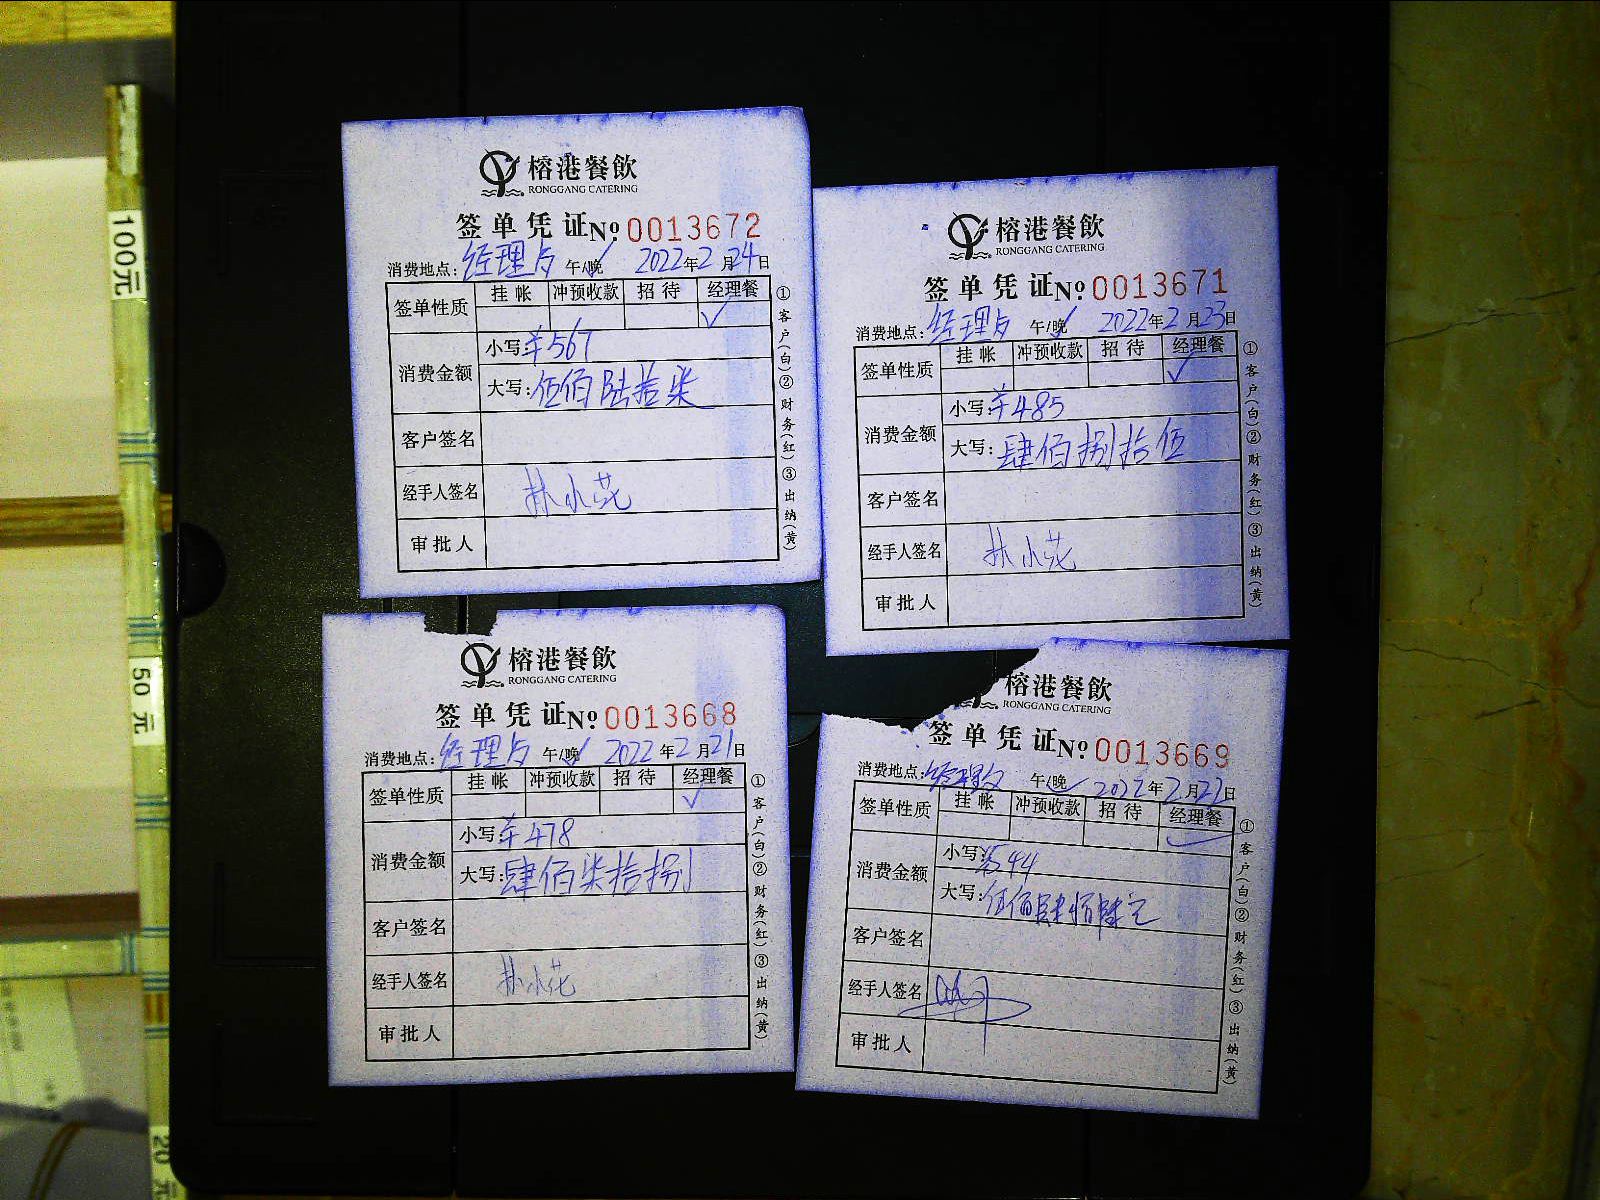 100元
50元
20元
榕港餐飲
RONGGANG CATERING
签单凭证 № 0013672
消费地点: 经理与 午/晚 2022年2月24日
签单性质 挂帐 冲预收款 招待 经理餐
✓
消费金额 小写: ¥567
大写: 伍佰陆拾柒
客户签名
经手人签名 林小花
审批人
①客户(白)②财务(红)③出纳(黄)
榕港餐飲
RONGGANG CATERING
签单凭证 № 0013671
消费地点: 经理与 午/晚 2022年2月23日
签单性质 挂帐 冲预收款 招待 经理餐
✓
消费金额 小写: ¥485
大写: 肆佰捌拾伍
客户签名
经手人签名 林小花
审批人
①客户(白)②财务(红)③出纳(黄)
榕港餐飲
RONGGANG CATERING
签单凭证 № 0013668
消费地点: 经理与 午/晚 2022年2月21日
签单性质 挂帐 冲预收款 招待 经理餐
✓
消费金额 小写: ¥478
大写: 肆佰柒拾捌
客户签名
经手人签名 林小花
审批人
①客户(白)②财务(红)③出纳(黄)
榕港餐飲
RONGGANG CATERING
签单凭证 № 0013669
消费地点: 经理 午/晚 2022年2月22日
签单性质 挂帐 冲预收款 招待 经理餐
✓
消费金额 小写: ¥544
大写: 伍佰肆拾肆元
客户签名
经手人签名
审批人
①客户(白)②财务(红)③出纳(黄)